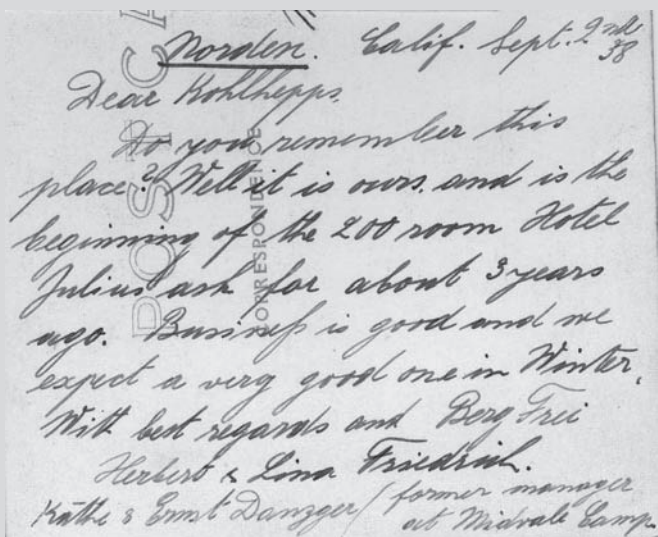 POST CA
CORRESPONDENCE
Norden. Calif. Sept. 2nd
38
Dear Kohlhepps.
Do you remember this
place? Well it is ours. and is the
beginning of the 200 room Hotel
Julius ask for about 3 years
ago. Business is good and we
expect a very good one in Winter,
With best regards and Berg Frei
Herbert & Lina Friedrich.
Käthe & Ernst Danzger / former manager
at Midvale Camp.